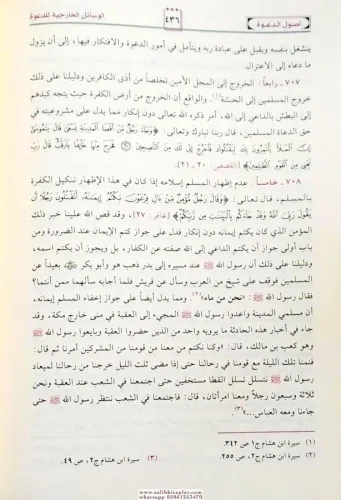 أصول الدعوة
٤٣٦
الوسائل الخارجية للدعوة
ينشغل بنفسه ويقبل على عبادة ربه ويتأمل في أمور الدعوة والافتكار فيها، إلى أن يزول
ما دعاه إلى الاعتزال.
٧٠٧ ـ رابعاً: الخروج إلى المحل الأمين تخلصاً من أذى الكافرين ودليلنا على ذلك
خروج المسلمين إلى الحبشة(١). والواقع أن الخروج من أرض الكفرة حيث يتجه كيدهم
إلى البطش بالداعي إلى الله، أمر ذكره الله تعالى دون إنكار مما يدل على مشروعيته في
حق الدعاة المسلمين، قال ربنا تبارك وتعالى: ﴿وَجَاءَ رَجُلٌ مِّنْ أَقْصَا الْمَدِينَةِ يَسْعَى قَالَ يَمُوسَى
إِنَّ الْمَلَأَ يَأْتَمِرُونَ بِكَ لِيَقْتُلُوكَ فَاخْرُجْ إِنِّي لَكَ مِنَ النَّصِحِينَ ۞ فَخَرَجَ مِنْهَا خَائِفًا يَتَرَقَّبُ قَالَ رَبِّ
نَجِّنِي مِنَ الْقَوْمِ الظَّلِمِينَ﴾ [القصص: ٢٠ ـ ٢١].
٧٠٨ ـ خامساً: عدم إظهار المسلم إسلامه إذا كان في هذا الإظهار تنكيل الكفرة
بالمسلم، قال تعالى: ﴿وَقَالَ رَجُلٌ مُّؤْمِنٌ مِّنْ ءَالِ فِرْعَوْنَ يَكْتُمُ إِيمَنَهُ أَتَقْتُلُونَ رَجُلًا أَن
يَقُولَ رَبِّيَ اللَّهُ وَقَدْ جَاءَكُم بِالْبَيِّنَتِ مِن رَّبِّكُمْ﴾ [غافر: ٢٧]، وقد قص الله علينا خبر ذلك
المؤمن الذي كان يكتم إيمانه دون إنكار فدل على جواز كتم الإيمان عند الضرورة ومن
باب أولى جواز أن يكتم الداعي إلى الله صفته عن الكفار، بل ويجوز أن يكتم اسمه،
ودليلنا على ذلك أن رسول الله ﷺ عند مسيره إلى بدر ذهب هو وأبو بكر بعيداً عن
المسلمين فوقف على شيخ من العرب وسأل عن قريش فلما أجابه سألهما ممن أنتما؟
فقال رسول الله ﷺ: «نحن من ماء»(٢). ومما يدل أيضاً على جواز إخفاء المسلم إيمانه،
أن مسلمي المدينة واعدوا رسول الله ﷺ المجيء إلى العقبة في منى خارج مكة، وقد
جاء في أخبار هذه الحادثة ما يرويه واحد من الذين حضروا العقبة وبايعوا رسول الله ﷺ
وهو كعب بن مالك، قال: «وكنا نكتم من معنا من قومنا من المشركين أمرنا ثم قال:
فنمنا تلك الليلة مع قومنا في رحالنا حتى إذا مضى ثلث الليل خرجنا من رحالنا لميعاد
رسول الله ﷺ نتسلل تسلل القطا مستخفين حتى اجتمعنا في الشعب عند العقبة ونحن
ثلاثة وسبعون رجلاً ومعنا امرأتان، قال: فاجتمعنا في الشعب ننتظر رسول الله ﷺ حتى
جاءنا ومعه العباس...»(٣).
(١) سيرة ابن هشام ج١ ص ٣٤٢.
(٢) سيرة ابن هشام ج٢، ص ٢٥٥.
(٣) سيرة ابن هشام ج٢، ص ٤٩.
www.salihkitaplar.com
whatsapp 05061215470